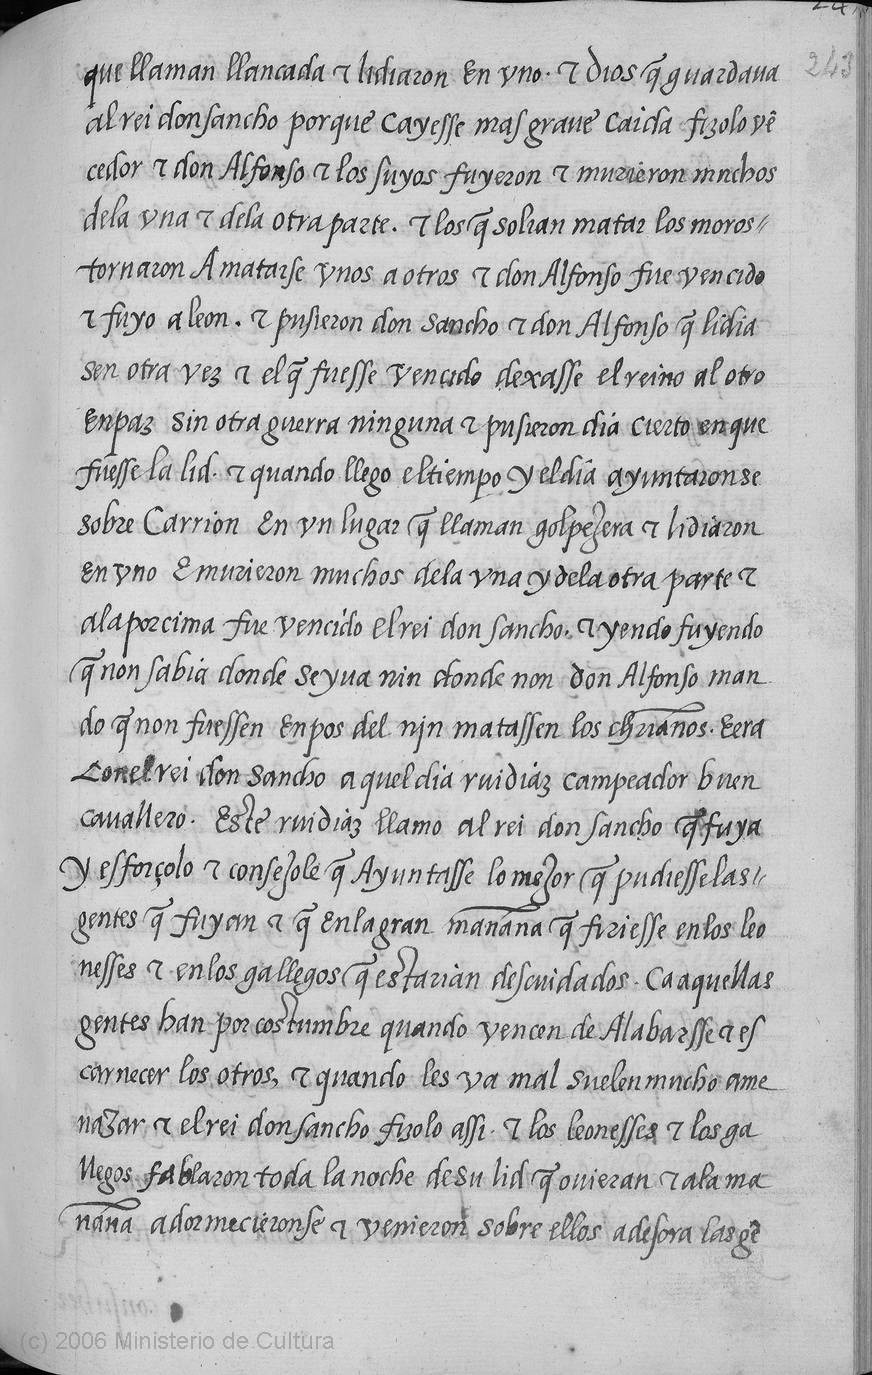 243
que llaman llancada ⁊ lidiaron En vno · ⁊ Dios q̃ guardaua
al rei don sancho porque Cayesse mas graue Caida fizolo vẽ
cedor ⁊ don Alfonso ⁊ los suyos fuyeron ⁊ murieron muchos
dela vna ⁊ dela otra parte . ⁊ los q̃ solian matar los moros〃
tornaron A matarse vnos a otros ⁊ don Alfonso fue vencido
⁊ fuyo a leon . ⁊ pusieron don sancho ⁊ don Alfonso q̃ lidia
sen otra vez ⁊ el q̃ fuesse vencido dexasse el reino al otro
Enpaz sin otra guerra ninguna ⁊ pusieron dia cierto en que
fuesse la lid · ⁊ quando llego el tiempo y el dia ayuntaronse
sobre Carrion En vn lugar q̃ llaman golpejera ⁊ lidiaron
En vno E murieron muchos dela vna y dela otra parte ⁊
ala porcima fue vencido El rei don sancho . ⁊ yendo fuyendo
q̃ non sabia donde se yua nin donde non don Alfonso man
do q̃ non fuessen Enpos del nin matassen los chr̃ianos · E era
Con el rei don sancho aquel dia ruidiaz campeador buen
cauallero · Este ruidiaz llamo al rei don sancho q̃ fuya
y esforçolo ⁊ consejole q̃ Ayuntasse lo mejor q̃ pudiesse las〃
gentes q̃ fuyan ⁊ q̃ En la gran mañana q̃ firiesse en los leo
nesses ⁊ en los gallegos q̃ estarian descuidados · Ca aquellas
gentes han por costumbre quando vencen de Alabarsse ⁊ es
carnecer los otros, ⁊ quando les va mal suelen mucho ame
nazar ⁊ el rei don sancho fizolo assi · ⁊ los leonesses ⁊ los ga
llegos fablaron toda la noche de su lid q̃ ouieran ⁊ ala ma
ñana adormecieronse ⁊ venieron sobre ellos adesora las gẽ
(c) 2006 Ministerio de Cultura